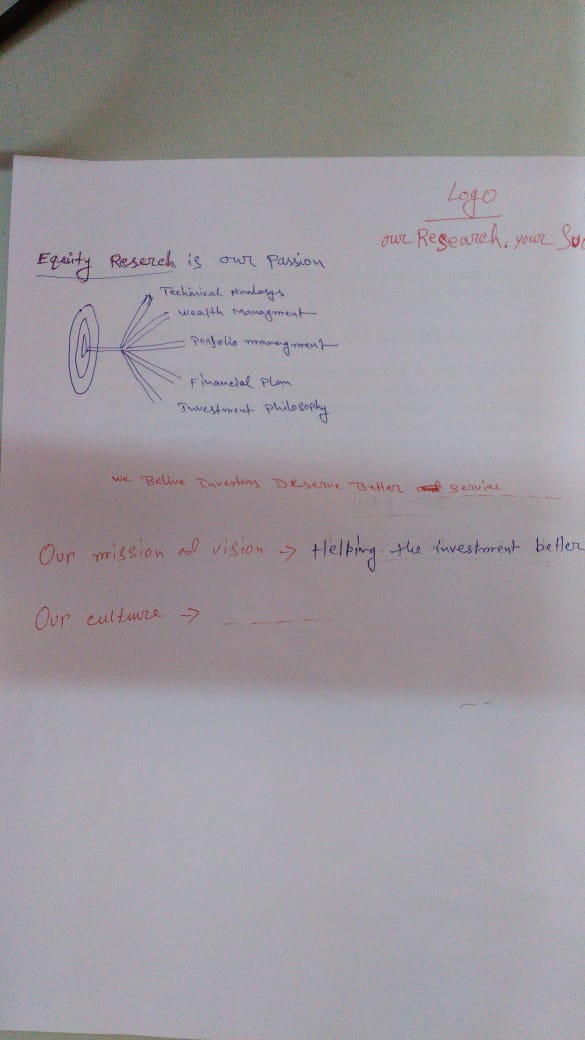 Logo
our Research, your Suc
Equity Reserch is our Passion
Techinical Analasys
Wealth Managment
Porfolio managment
Financial Plan
Investment philosophy
We Belive Investors Deserve Better service
Our mission and vision → Helping the investment better
Our culture →